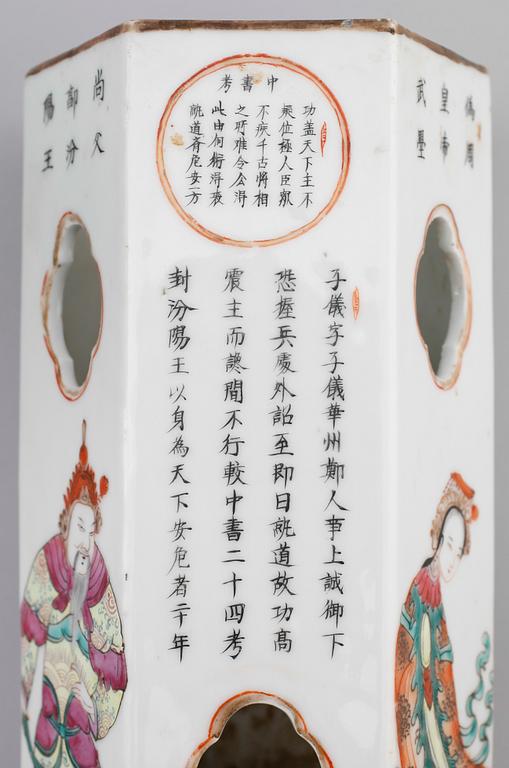 偽周
皇帝
武曌
中書考
功盖天下主不
疑位極人臣眾
不疾千古將相
之所难令公淂
此由何術淂來
就道脊危安一方
子儀字子儀華州鄭人事上誠御下
恐握兵處外詔至即日就道故功高
震主而讒間不行較中書二十四考
封汾陽王以身為天下安危者二十年
尚父
郭汾
陽王